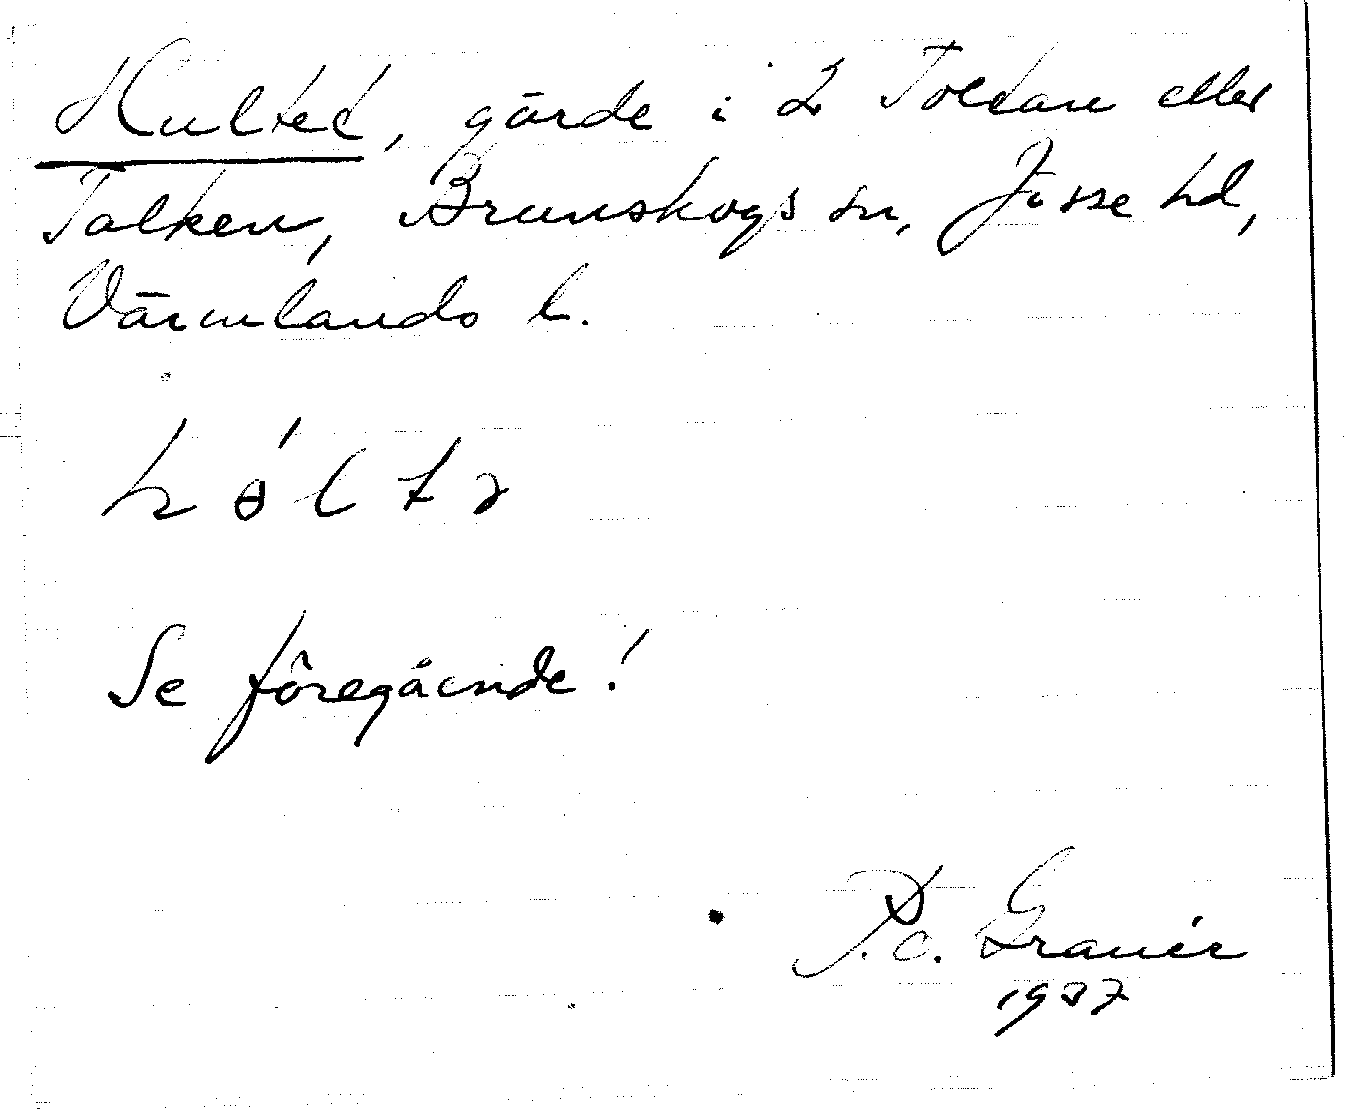 Hultet, gärde i 2 Tolkan eller
Talken, Brunskogs sn, Jösse hd,
Värmlands l.
hɵ́ltɤ
Se föregående!
P.O. Granér
1937